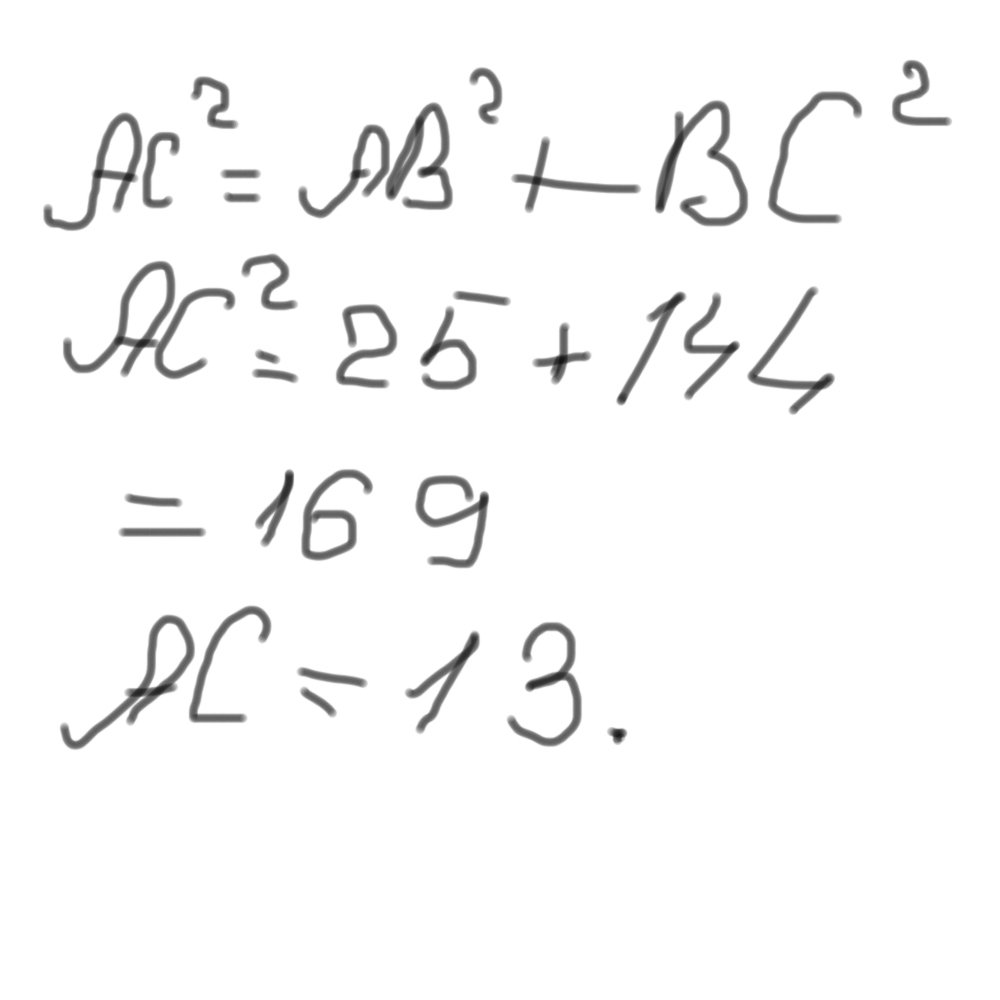 AC² = AB² + BC²
AC² = 25 + 144
= 169
AC = 13.